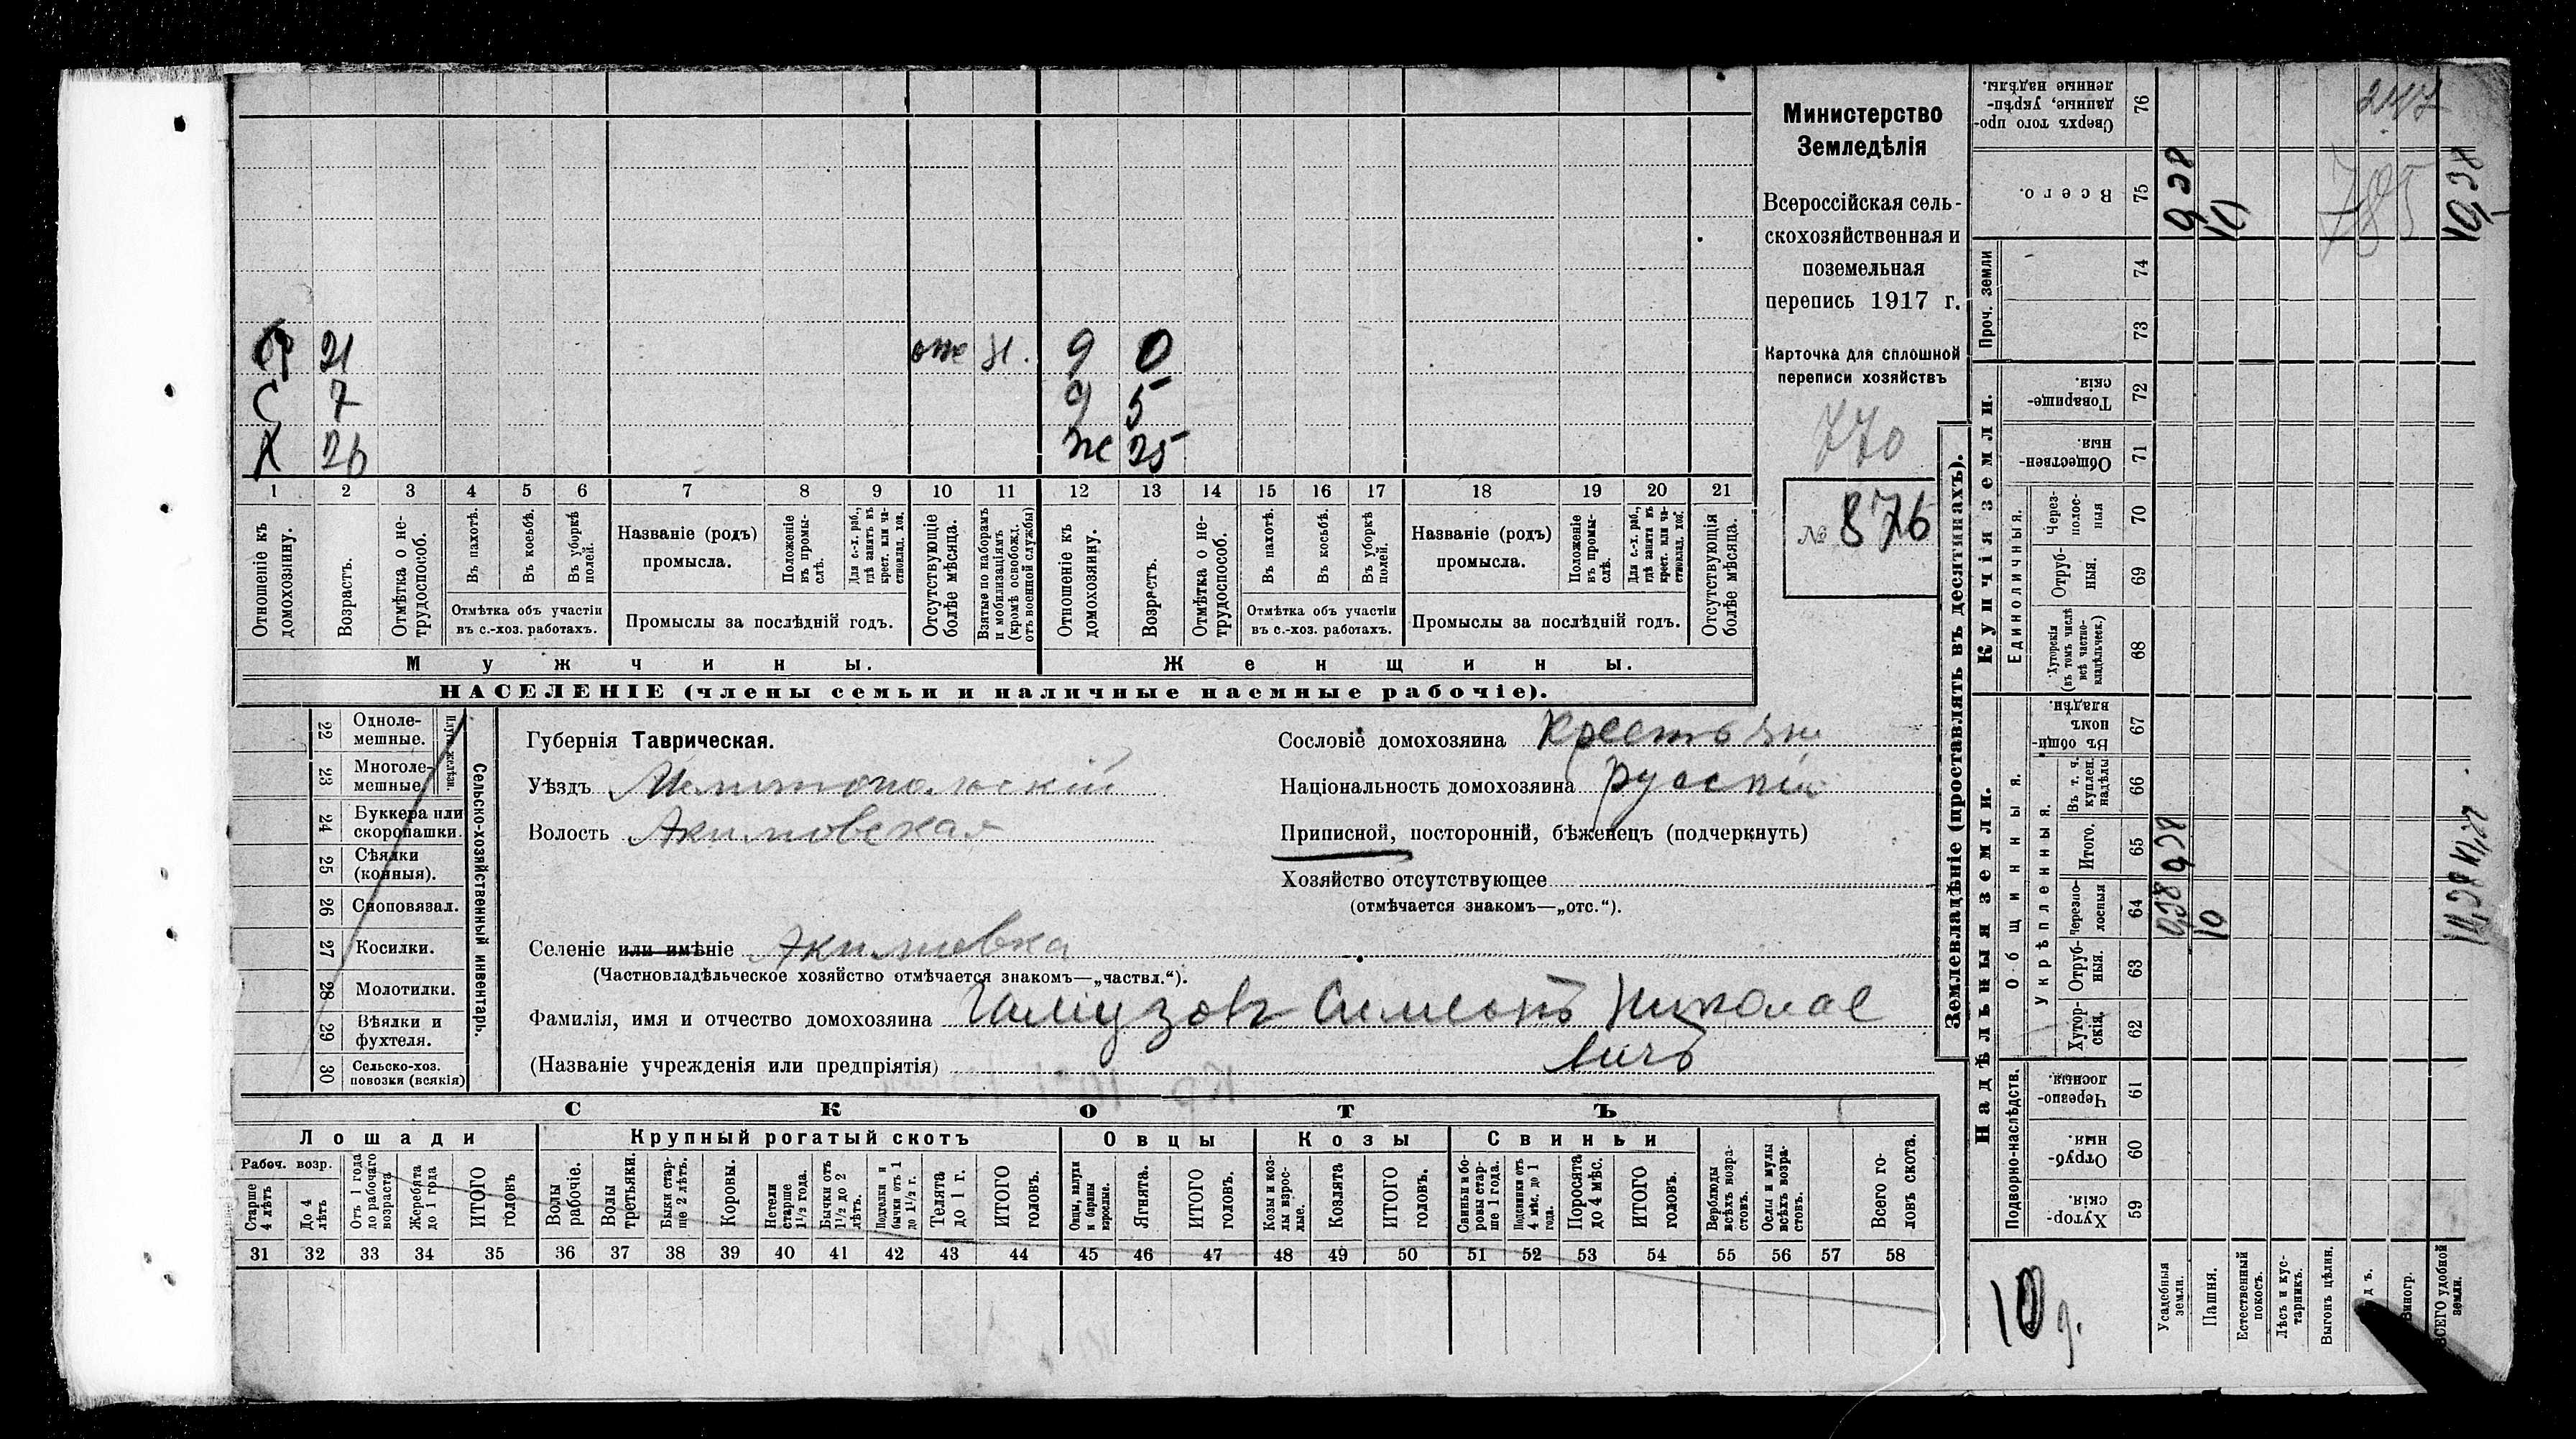 Министерство
Земледѣлія
Всероссійская сель-
скохозяйственная и
поземельная
перепись 1917 г.
Карточка для сплошной
переписи хозяйствъ
770
№ 876
Бр 21 отс Н. 9 0
С 7 9 5
Х 26 ж 25
1 2 3 4 5 6 7 8 9 10 11 12 13 14 15 16 17 18 19 20 21
Отношеніе къ домохозяину.
Возрастъ.
Отмѣтка о не-трудоспособ.
Въ пахотѣ.
Въ косьбѣ.
Въ уборкѣ полей.
Отмѣтка объ участіи
въ с.-хоз. работахъ.
Названіе (родъ)
промысла.
Положеніе въ промы-слѣ.
Для с.-х. раб., гдѣ занятъ въ крест. или ча-стновлад. хоз.
Промыслы за послѣдній годъ.
Отсутствующіе болѣе мѣсяца.
Взятые по наборамъ и мобилизаціямъ (кромѣ освобожд. отъ военной службы)
Отношеніе къ домохозяину.
Возрастъ.
Отмѣтка о не-трудоспособ.
Въ пахотѣ.
Въ косьбѣ.
Въ уборкѣ полей.
Отмѣтка объ участіи
въ с.-хоз. работахъ.
Названіе (родъ)
промысла.
Положеніе въ промы-слѣ.
Для с.-х. раб., гдѣ занятъ въ крест. или ча-стновлад. хоз.
Промыслы за послѣдній годъ.
Отсутствующія болѣе мѣсяца.
Мужчины. Женщины.
НАСЕЛЕНІЕ (члены семьи и наличные наемные рабочіе).
Сельско-хозяйственный инвентарь.
22 Одноле-мешные.
23 Многоле-мешные.
24 Буккера или скоропашки.
25 Сѣялки (конныя).
26 Сноповязал.
27 Косилки.
28 Молотилки.
29 Вѣялки и фухтеля.
30 Сельско-хоз. повозки (всякія)
Губернія Таврическая.
Уѣздъ Мелитопольскій
Волость Акимовская
Сословіе домохозяина Крестьян
Національность домохозяина русскій
Приписной, посторонній, бѣженецъ (подчеркнуть)
Хозяйство отсутствующее
(отмѣчается знакомъ—„отс.“).
Селеніе или имѣніе Акимовка
(Частновладѣльческое хозяйство отмѣчается знакомъ—„частвл.“).
Фамилія, имя и отчество домохозяина Гамузовъ Симеонъ Николае
вичъ
(Названіе учрежденія или предпріятія)
СКОТЪ
Лошади Крупный рогатый скотъ Овцы Козы Свиньи
Рабоч. возр.
Старше 4 лѣтъ
До 4 лѣтъ
Отъ 1 года до рабочаго возраста
Жеребята до 1 года
ИТОГО головъ
Волы рабочіе.
Волы третьяки.
Быки стар-ше 2 лѣтъ.
Коровы.
Нетели старше 1½ года.
Бычки отъ 1½ до 2 лѣтъ.
Подтелки и бычки отъ 1 до 1½ г.
Телята до 1 г.
ИТОГО головъ.
Овцы, валухи и бараны взрослые.
Ягнята.
ИТОГО головъ.
Козы и коз-лы взрос-лые.
Козлята
ИТОГО головъ.
Свиньи и бо-ровы стар-ше 1 года.
Подсвинки отъ 4 мѣс. до 1 года.
Поросята до 4 мѣс.
ИТОГО головъ.
Верблюды всѣхъ возра-стовъ.
Ослы и мулы всѣхъ возра-стовъ.
Всего го-ловъ скота.
31 32 33 34 35 36 37 38 39 40 41 42 43 44 45 46 47 48 49 50 51 52 53 54 55 56 57 58
Землевладѣніе (проставлять въ десятинахъ).
Надѣльныя земли. Купчія земли. Проч. земли
Подворно-наслѣдств.
Общинныя.
Укрѣпленныя.
Единоличныя.
59 Хутор-скія.
60 Отруб-ныя.
61 Черезпо-лосныя.
62 Хутор-скія.
63 Отруб-ныя.
64 Черезпо-лосныя
65 Итого.
66 Въ т. ч. куплен. надѣлы
67 Въ общи-номъ владѣн.
68 Хуторскія (въ томъ числѣ всѣ частно-владѣльческ.)
69 Отруб-ныя.
70 Через-полос-ныя
71 Обществен-ныя.
72 Товарище-скія.
73
74
75 Всего.
76 Сверхъ того про-данные, укрѣп-ленные надѣлы.
Усадебныя земли.
Пашня.
Естественный покосъ.
Лѣсъ и кус-тарникъ.
Выгонъ цѣлин.
Виногр.
ВСЕГО удобной земли.
10
785
10 д.